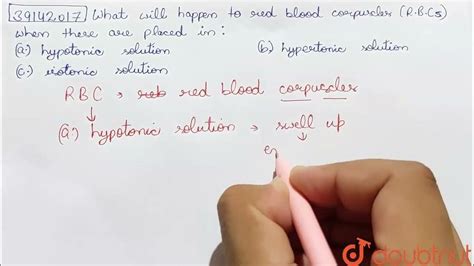 39142017 What will happen to red blood corpuscles (R.B.Cs)
when there are placed in :
(a) hypotonic solution (b) hypertonic solution
(c) isotonic solution
RBC → reb red blood corpuscles
↓
(a) hypotonic solution → swell up
↓
en
doubtnut